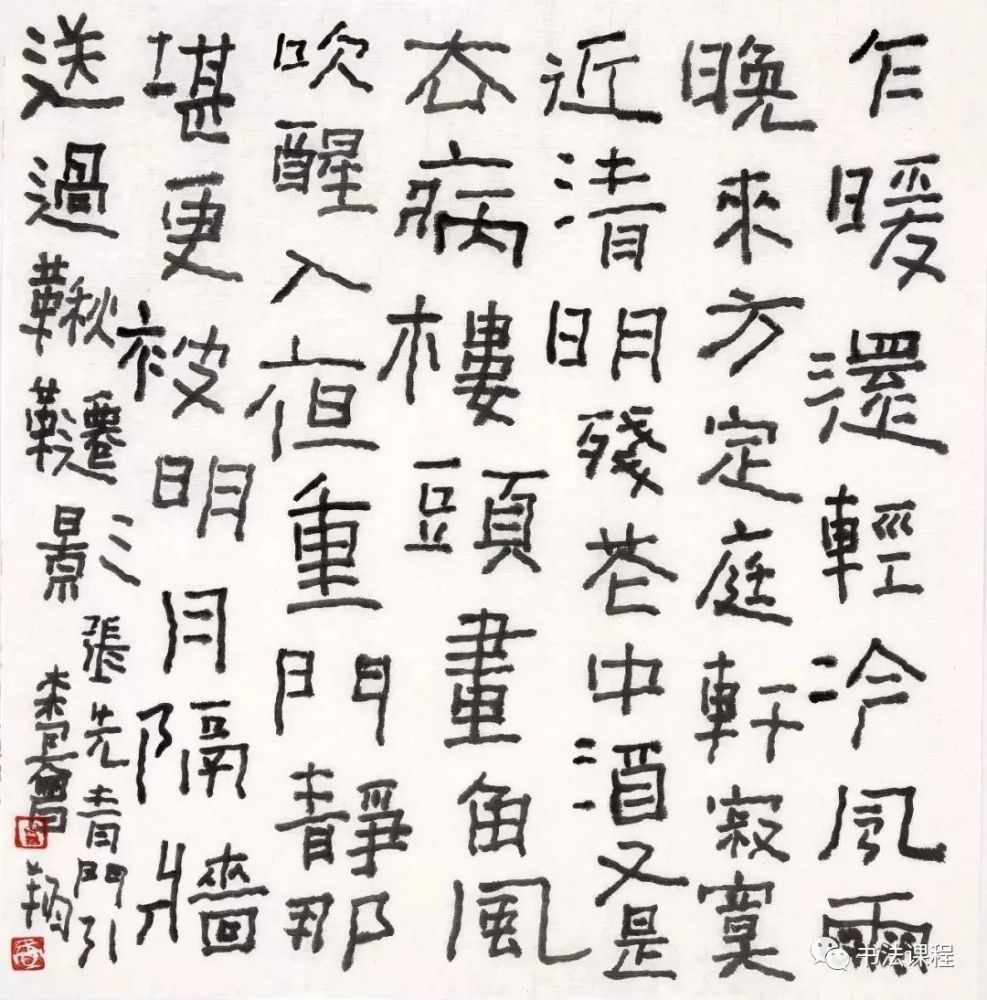 乍暖還輕冷風雨
晚來方定庭軒寂寞
近清明殘花中酒又是
去病樓頭畫角風
吹醒入夜重門靜那
堪更被明月隔牆
送過鞦韆影
張先青門引
书法课程